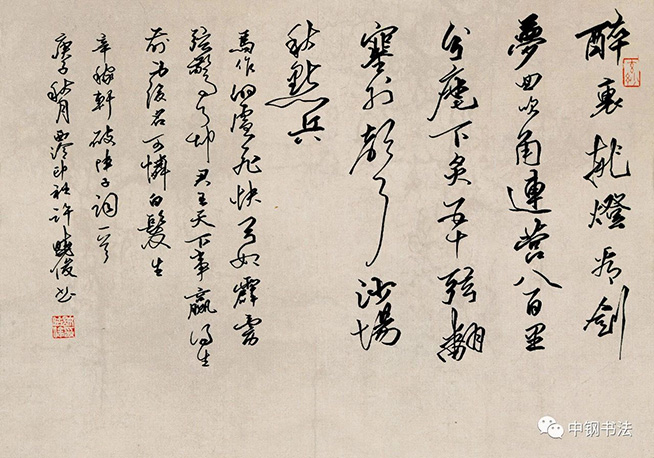 醉裏挑燈看劍
夢回吹角連营八百里
分麾下炙五十弦翻
塞外聲沙場
秋點兵
馬作的盧飛快弓如霹靂
弦驚了却君王天下事贏得生
前身後名可憐白髮生
辛稼軒破陣子詞一首
庚子秋月西泠印社許曉俊书
中钢书法